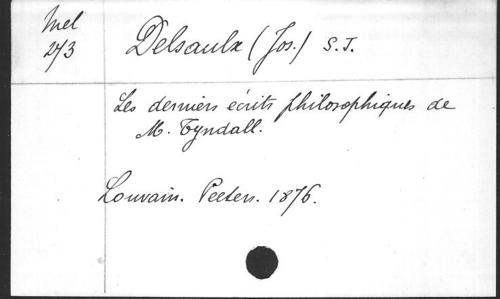 Mel
273
Delsaulx (Jos.) S.J.
Les derniers écrits philosophiques de
M. Tyndall.
Louvain. Peeters. 1876.